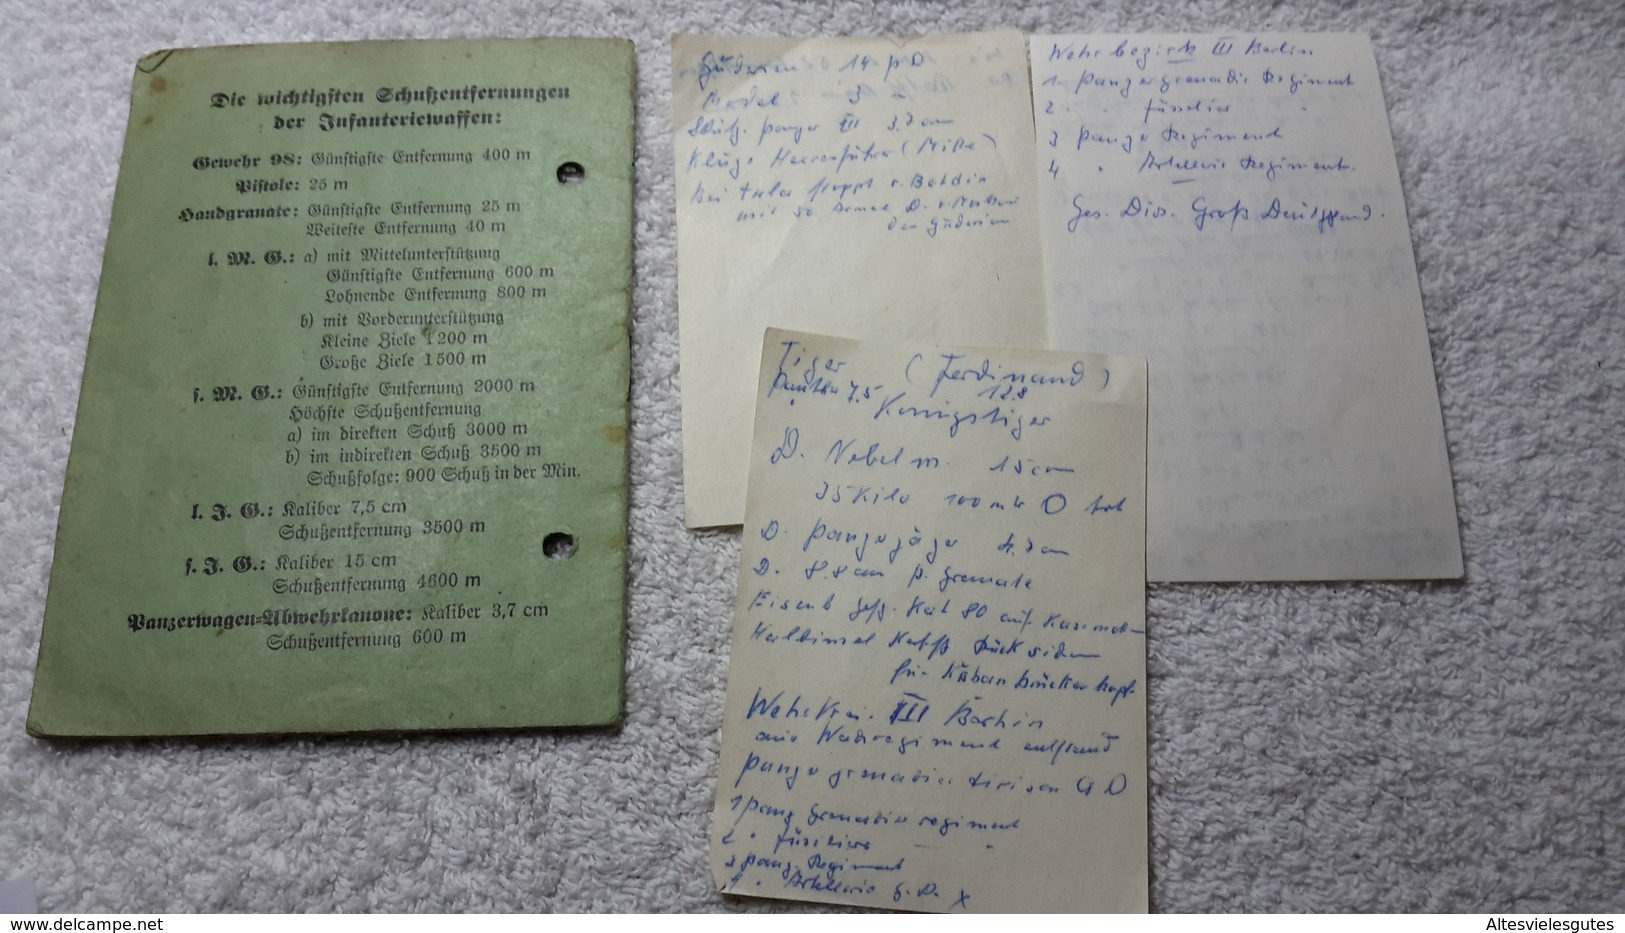 Die wichtigsten Schußentfernungen
der Infanteriewaffen:
Gewehr 98: Günstigste Entfernung 400 m
Pistole: 25 m
Handgranate: Günstigste Entfernung 25 m
Weiteste Entfernung 40 m
l. M. G.: a) mit Mittelunterstützung
Günstigste Entfernung 600 m
Lohnende Entfernung 800 m
b) mit Vorderunterstützung
Kleine Ziele 1200 m
Große Ziele 1500 m
s. M. G.: Günstigste Entfernung 2000 m
Höchste Schußentfernung
a) im direkten Schuß 3000 m
b) im indirekten Schuß 3500 m
Schußfolge: 900 Schuß in der Min.
l. I. G.: Kaliber 7,5 cm
Schußentfernung 3500 m
s. I. G.: Kaliber 15 cm
Schußentfernung 4600 m
Panzerwagen-Abwehrkanone: Kaliber 3,7 cm
Schußentfernung 600 m
Güderian 14 p D
Model 3
panzer III 3.7 cm
Kluge Heeresführer (Mitte)
Bei Tula stoppt v. Boldin
mit 50 Armee
den Güderian
Wehrbezirk III Berlin
1. Panzergrenadir Regiment
2. " Füsselier "
3 Panzer Regiment
4 " Artellerie Regiment.
Ges. Div. Groß Deutschland.
Tiger (Ferdinand)
Panther 7.5 12.8
" Königstiger
D. Nebel m. 15 cm
35 Kilo 100 mtr
D. Panzerjäger 4.7 cm
D. 8.8 cm p. Granate
Eisenb Gesch. Kal 80 auf
Halbinsel
für Kuban Brückenkopf
Wehrkrei. III Berlin
aus Wachregiment entstand
Panzergrenadier division G D
1 Panz Grenadier regiment
2 " Füsiliere — "
3 Panz. Regiment
4 " Artellerie G. D. X
www.delcampe.net
Altesvielesgutes